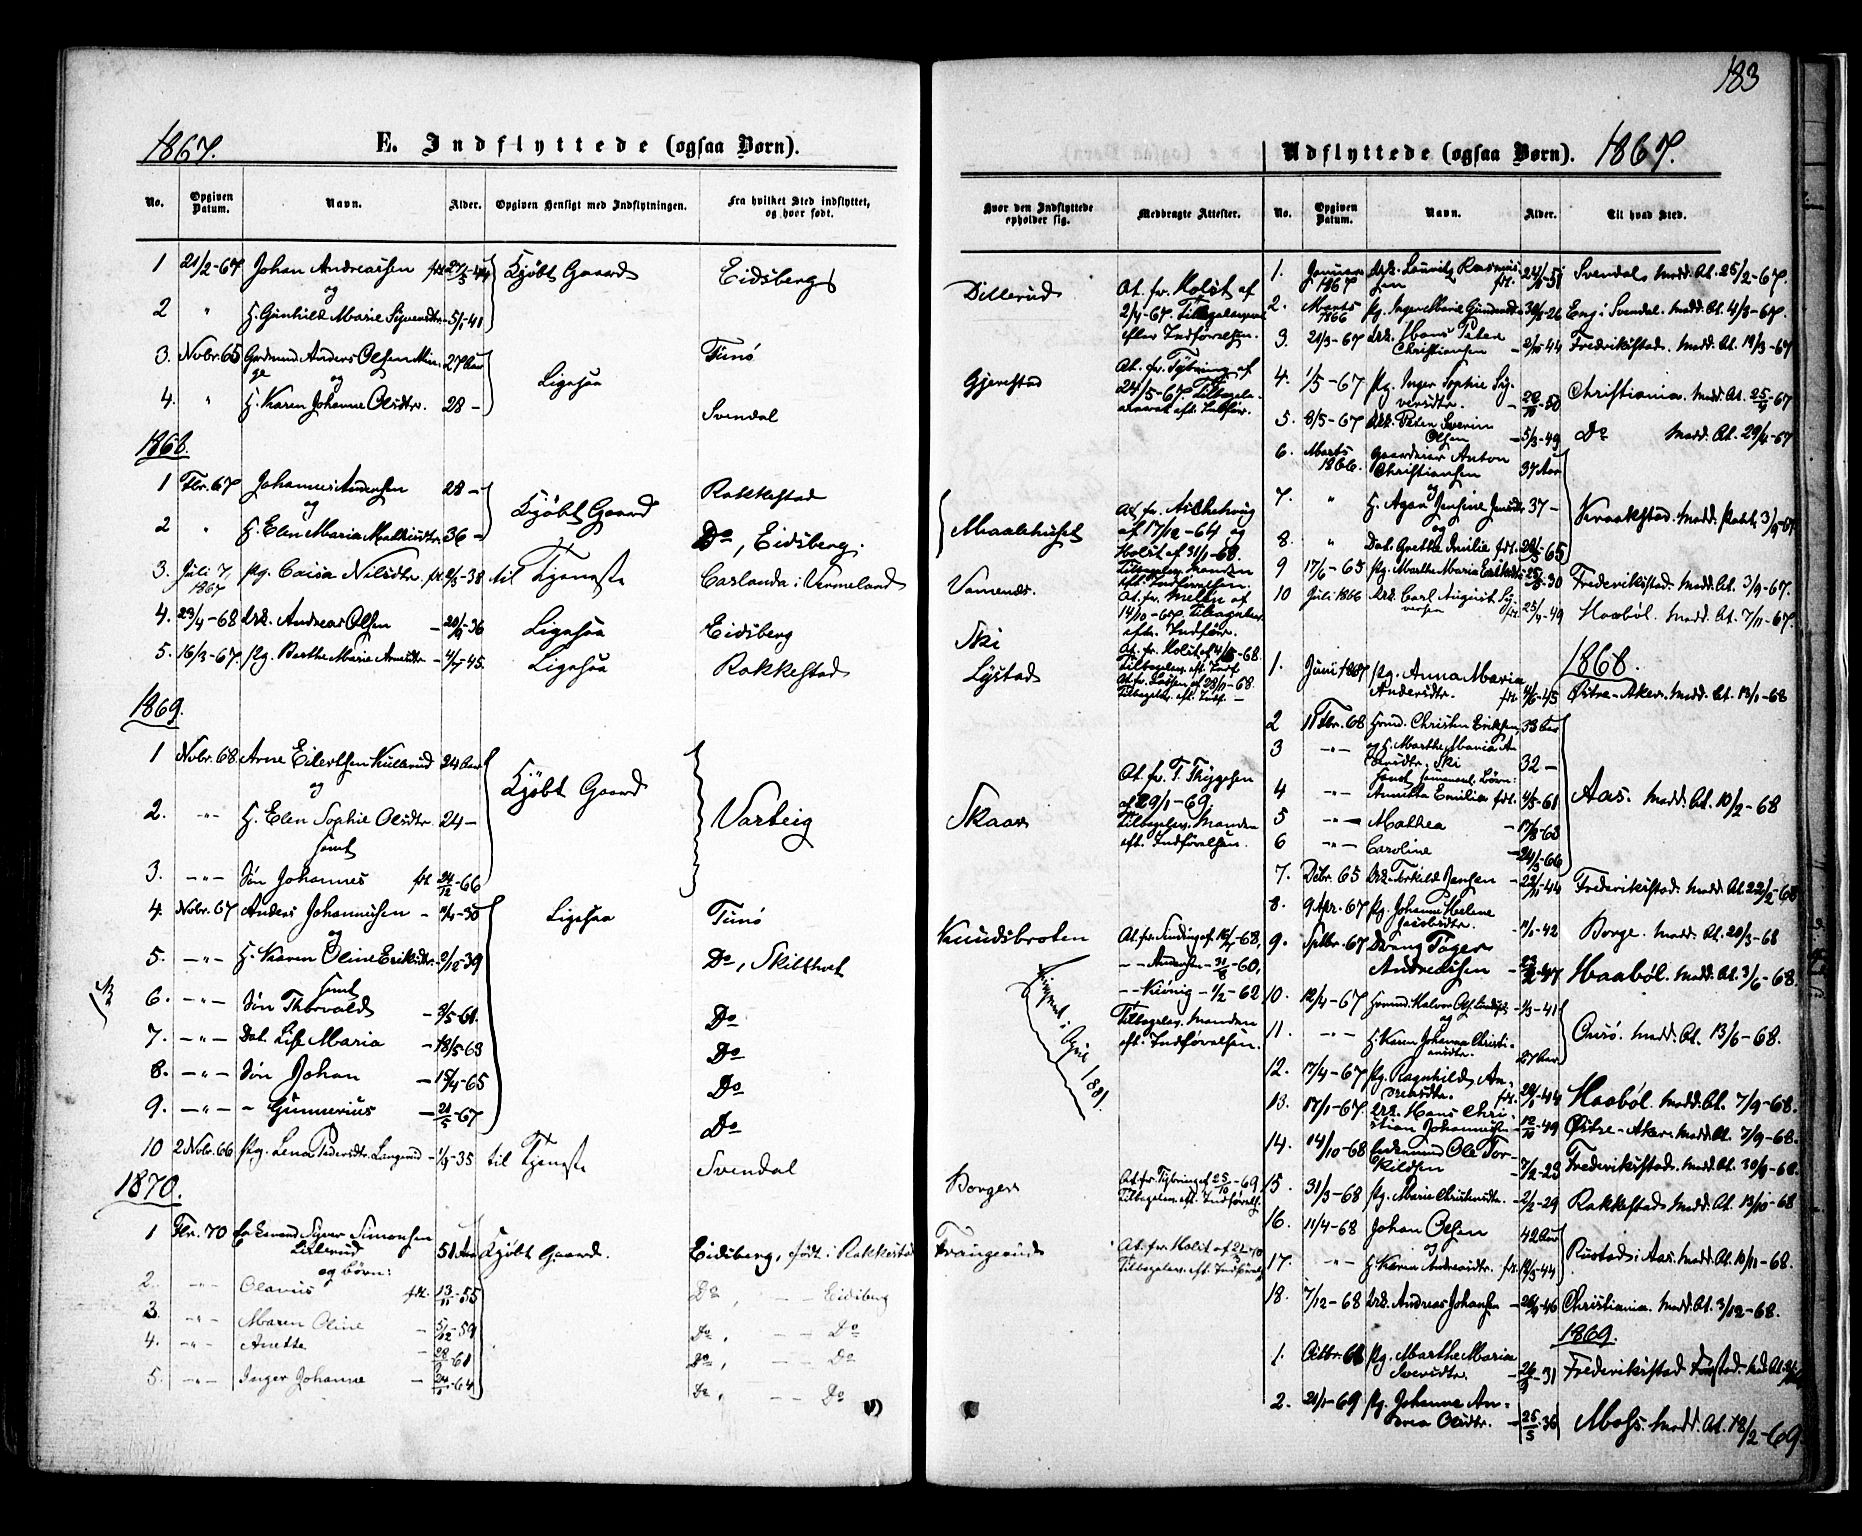 183
1867.
E. Indflyttede (ogsaa Børn).
No.
Opgiven Datum.
Navn.
Alder.
Opgiven Hensigt med Indflytningen.
Fra hvilket Sted indflyttet, og hvor født.
1 21/2-67 Johan Andreassen født 27/5-44 Kjøbt Gaard Eidsberg
og
2 " H. Gunhild Marie Syversdtr. 5/1-41
3. Novbr. 65 Anders Olsen 27 Aar Ligesaa Tunø
og
4. " H. Karen Johanne Olsdtr. 28 - Svendal
1868.
1 Fbr. 67 Johannes Andersen 28 - Kjøbt Gaard Rakkestad
og
2 " H. Elen Maria Mathisdtr. 36 - Do, Eidsberg.
3. Juli 7, 1867 Pig. Caisa Nilsdtr. 2/3-38 til Tjeneste Carlanda i Vermeland
4. 23/4-68 Drk. Andreas Olsen - 20/9-36 Ligesaa Eidsberg
5. 16/3-67. Pig. Berthe Marie Arnesdtr. - 4/5-45. Ligesaa Rakkestad
1869.
1 Novbr. 68. Arne Eilertsen Kullerud 24 Aar Kjøbt Gaard Varteig
og
2. -"- H. Elen Sophie Olsdtr. 24 -
samt
3. -"- Søn Johannes fdt. 24/12-66
4. Novbr. 67 Anders Johannesen - 30 Ligesaa Tunø
og
5. -"- H. Karen Oline Eriksdtr. 2/12-39 Do, Skibthvet
samt
6. -"- Søn Thorvald - 9/5-61. Do
7. -"- Dat. Lise Maria - 18/5-63 Do
8. -"- Søn Johan - 15/4-65 Do
9. -"- - Gunnerius - 21/5-67 Do
10 2 Novbr. 66 Pig. Lena Pedersdtr. Langerud - 1/9-35 til Tjeneste Svendal
1870.
1 Fbr. 70 Syver Simonsen 51 Aar Kjøbt Gaard. Eidsberg, født i Rakkestad
Lillerud
og Børn:
2. -"- Olavus fdt. 13/11-55 Do, - - Eidsberg
3. -"- Maren Oline - 5/12-59 Do, - - Do
4. -"- Anette - 28/2-61 Do, - - Do
5. -"- Inger Johanne - 24/5-64 Do, - - Do
Udflyttede (ogsaa Børn). 1867.
Hvor den Indflyttede opholder sig.
Medbragte Attester.
No.
Opgiven Datum.
Navn.
Alder.
Til hvad Sted.
Dillerud
At. fr. Holst af
2/4-67. Tilbagelev.
efter Indførelsen.
Gjerestad
At. fr. Tybring af
24/5-67. Tilbagele-
veret eft. Indfør.
Maalehuset
af 17/12-64 og
Holst af 31/1-68.
Tilbagelev. Manden
eft. Indførelsen.
Vamenæs.
At. fr. Melin af
14/10-67. Tilbagelev.
eftr. Indfør.
Ski
At. fr. Holst af 4/5-68.
Tilbagelev. eft. Indf.
Lystad
Tilbagelev. eft. Indf. -
Skaar
At. fr. T. Thygesen
af 29/1-69.
Tilbagelev. Manden
eft. Indførelsen.
Knudsbroten
- - Andersen - 31/8-60,
- - König - 1/2-62
Tilbagelev. Manden
eft. Indførelsen.
1881.
Borger
At. fr. Tybring af 25/10-69.
Tilbagelev. eft. Indførels.
Frangerud
At. fr. Holst af
Tilbagelev. eft. Indførels.
1. Januar 1867 Drk. Lauritz Rasmus-
sen fdt. 24/11-51 Svendal Medd. At. 25/2-67.
2. Marts 1866 Pg. Inger Marie Gundersdtr. 30/8-26 Eng i Svendal. Medd. At. 4/3-67.
3 21/3-67 Drk. Hans Peter
Christiansen - 2/10-44 Frederikstad. Medd. At. 19/3-67
4. 1/5-67 Pg. Inger Sophie Sy-
versdtr. - 28/10-50 Christiania. Medd. At. 25/4-67
5. 8/5-67 Drk. Peter Severin
Olsen - 5/3-49 Do Medd. At. 29/4-67
6. Marts 1866. Gaardeier Anton
Christiansen 37 Aar
og
7. " H. Agan Jensine Jensdtr. 37 - Kraakstad. Medd. Pabt. 3/9-67
og
8. " Dat. Grethe Emilie fdt. 29/5-65
9 17/6-65 Pg. Marthe Maria Eriksdtr. 25/8-30 Frederikstad. Medd. At. 3/9-67.
10 Juli 1866 Drk. Carl August Sy-
versen fdt. 25/4-49 Haabøl. Medd. At. 7/11-67.
1868.
1. Juni 1867 Pg. Anna Maria
Andersdtr. fdt. 4/6-45 Østre-Aker. Medd. At. 13/1-68
2 11 Fbr. 68 Christen Eriksen 33 Aar
3 -"- og H. Marthe Maria An-
dersdtr. Ski 32 -
Børn:
4 -"- Annette Emilia fdt. 4/5-61 Aas. Medd. At. 10/2-68
5 -"- Mathea - 17/8-63
6 -"- Caroline - 24/3-66
7. Dcbr. 65 Drk. Terkild Jensen - 22/11-44 Frederikstad. Medd. At. 22/2-68
8. 9 Apr. 67 Pg. Johanne Helene
Jacobsdtr. - 11/1-42 Borge. Medd. At. 20/3-68
9. Septbr. 67 Dreng Jøger
Andreassen - 23/12-47 Haabøl. Medd. At. 3/6-68.
10. 12/4-67 Halvor - 1/3-41
og
11. -"- H. Karen Johanne Christi-
ansdtr. 27 Aar Onsø. Medd. At. 13/6-68.
12. 17/4-67 Pg. Ragnhild An-
dersdtr. fdt. 29/1-44 Haabøl. Medd. At. 7/9-68.
13. 17/1-67. Drk. Hans Chri-
stian Johannesen - 12/10-49 Østre-Aker. Medd. At. 7/9-68.
14. 14/10-68 Ole Tor-
kildsen - 7/2-23 Frederikstad. Medd. At. 30/9-68.
15. 31/3-68 Pg. Marie Christensdtr. - 2/2-29 Rakkestad. Medd. At. 13/10-68
16. 11/4-68 Johan Olsen 42 Aar
og Rustad i Aas. Medd. At. 10/11-68.
17. -"- H. Karen Andreasdtr. fdt. 12/5-44
18. 7/12-68 Drk. Andreas Johansen - 26/9-46 Christiania. Medd. At. 3/12-68.
1869.
1. Octbr. 68 Pg. Marthe Maria
Iversdtr. - 26/9-31 Frederikstad
2. 21/1-69 Pg. Johanne An-
drea Olsdtr. - 25/5-36 Moss. Medd. At. 18/2-69